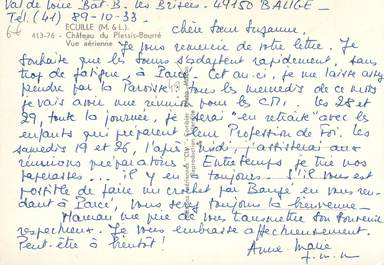 Val de Loire Bât. B. les Brisées. 49150 BAUGÉ -
Tél. (41) 89-10-33 -
ECUILLÉ (M. & L.)
413-76 - Château du Plessis-Bourré
Vue aérienne
chère Sœur Suzanne,
Je vous remercie de votre lettre. Je
souhaite que les Sœurs s'adaptent rapidement, sans
trop de fatigue, à Parcé. Cet an-ci, je me laisse assez
prendre par la Paroisse: tous les mercredis de ce mois
je vais avoir une réunion pour les CM1. les 28 et
29, toute la journée, je serai "en retraite" avec les
enfants qui préparent leur Profession de Foi. les
samedis 19 et 26, l'après-midi, j'assisterai aux
réunions préparatoires - Entretemps je tue vos
paperasses... il y en a toujours - S'il vous est
possible de faire un crochet par Baugé en vous ren-
dant à Parcé, vous serez toujours la bienvenue -
Maman me prie de vous transmettre son souvenir
respectueux. Je vous embrasse affectueusement.
Peut-être à bientôt!
Anne-Marie